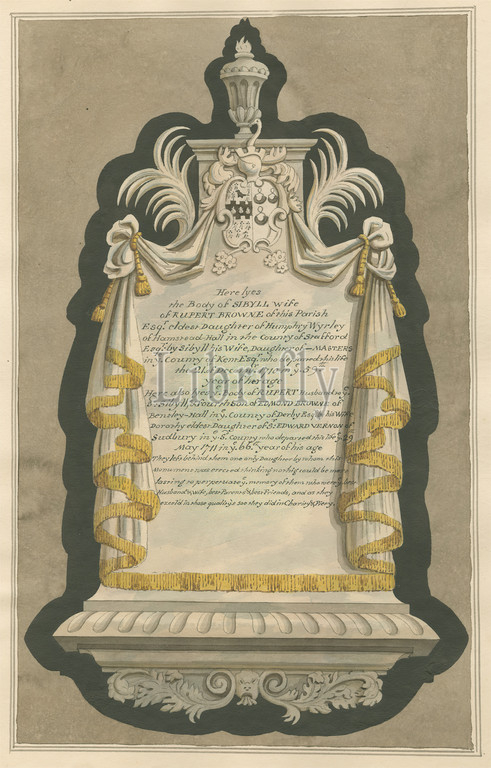 Here lyes
the Body of SIBYLL wife
of RUPERT BROWNE of this Parish
Esqr. eldest Daughter of Humphry Wyrley
of Hamstead-Hall in the County of Stafford
Esqr. by Sibyll his Wife, Daughter of — MASTERS
in ye. County of Kent Esqr. who departed this life
the
year of her age
Here also lyes ye. Body of RUPERT husband to ye.
Sibyll, fourth Son of EDMOND BROWNE of
Bentley-Hall in ye. County of Derby Esqr. by his Wife
Dorothy eldest Daughter of Sr. EDWARD VERNON of
Sudbury in ye. S. County who departed this life ye. 29
May 1711 in ye. 66th. year of his age
They left behind them one only Daughter by whom this
Monument was erected thinking nothing could be more
lasting to perpetuate ye. memory of them who were ye. best
Husband & wife, best Parents & best Friends, and as they
excell'd in these quality's soe they did in Charity & Piety.
Librifly